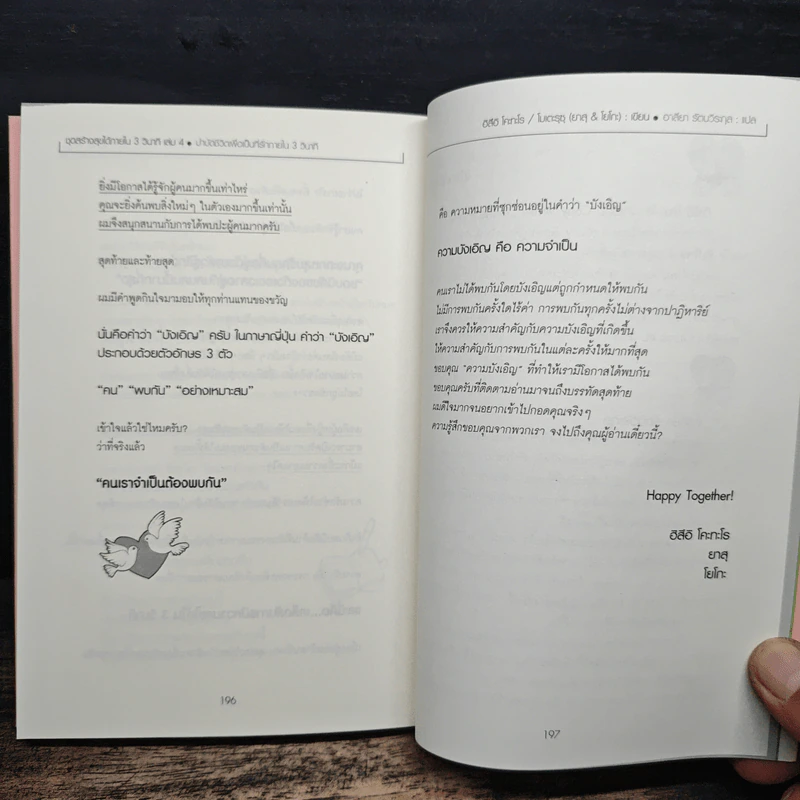 ชุดสร้างสุขได้ภายใน 3 วินาที เล่ม 4 • บำบัดชีวิตเพื่อเป็นที่รักภายใน 3 วินาที
ยิ่งมีโอกาสได้รู้จักผู้คนมากขึ้นเท่าไหร่
คุณจะยิ่งค้นพบสิ่งใหม่ๆ ในตัวเองมากขึ้นเท่านั้น
ผมจึงสนุกสนานกับการได้พบปะผู้คนมากครับ
สุดท้ายและท้ายสุด
ผมมีคำพูดกินใจมามอบให้ทุกท่านแทนของขวัญ
นั่นคือคำว่า “บังเอิญ” ครับ ในภาษาญี่ปุ่น คำว่า “บังเอิญ”
ประกอบด้วยตัวอักษร 3 ตัว
“คน” “พบกัน” “อย่างเหมาะสม”
เข้าใจแล้วใช่ไหมครับ?
ว่าที่จริงแล้ว
“คนเราจำเป็นต้องพบกัน”
196
ฮิสึอิ โคะทะโร / โมเตะรุซุ (ยาสุ & โยโกะ) : เขียน • อาลียา รัตนวีระกุล : แปล
คือ ความหมายที่ซุกซ่อนอยู่ในคำว่า “บังเอิญ”
ความบังเอิญ คือ ความจำเป็น
คนเราไม่ได้พบกันโดยบังเอิญแต่ถูกกำหนดให้พบกัน
ไม่มีการพบกันครั้งใดไร้ค่า การพบกันทุกครั้งไม่ต่างจากปาฏิหาริย์
เราจึงควรให้ความสำคัญกับความบังเอิญที่เกิดขึ้น
ให้ความสำคัญกับการพบกันในแต่ละครั้งให้มากที่สุด
ขอบคุณ “ความบังเอิญ” ที่ทำให้เรามีโอกาสได้พบกัน
ขอบคุณครับที่ติดตามอ่านมาจนถึงบรรทัดสุดท้าย
ผมดีใจมากจนอยากเข้าไปกอดคุณจริงๆ
ความรู้สึกขอบคุณจากพวกเรา จงไปถึงคุณผู้อ่านเดี๋ยวนี้?
Happy Together!
ฮิสึอิ โคะทะโร
ยาสุ
โยโกะ
197